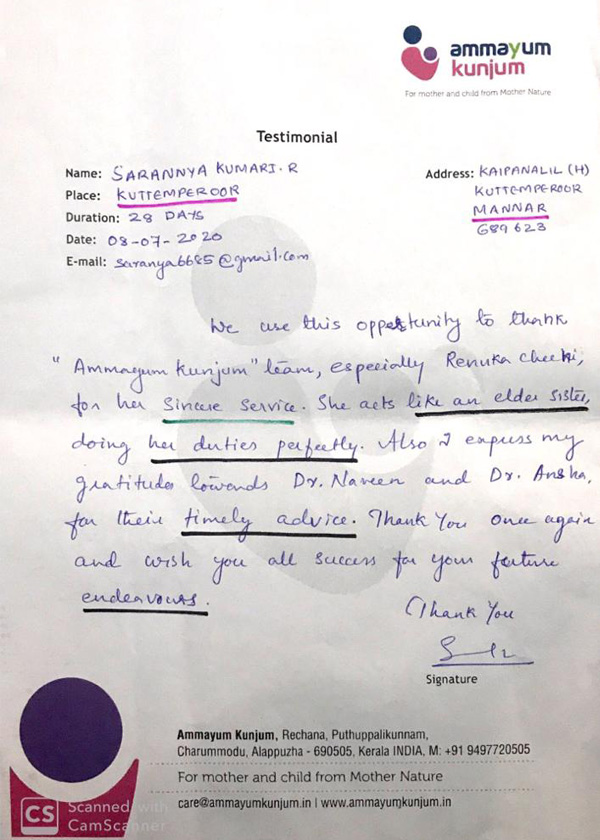 ammayum
kunjum
For mother and child from Mother Nature
Testimonial
Name: SARANNYA KUMARI.R
Place: KUTTEMPEROOR
Duration: 28 DAYS
Date: 08-07-2020
E-mail: saranya6685@gmail.com
Address: KAIPANALIL (H)
KUTTEMPEROOR
MANNAR
689623
We use this oppertunity to thank
"Ammayum kunjum" team, especially Renuka chechi,
for her sincere service. She acts like an elder sister,
doing her duties perfectly. Also I express my
gratitudes towards Dr. Naveen and Dr. Ansha,
for their timely advice. Thank You once again
and wish you all success for your furture
endeavours.
Thank You
Signature
Ammayum Kunjum, Rechana, Puthuppalikunnam,
Charummodu, Alappuzha - 690505, Kerala INDIA, M: +91 9497720505
For mother and child from Mother Nature
care@ammayumkunjum.in | www.ammayumkunjum.in
CS Scanned with
CamScanner